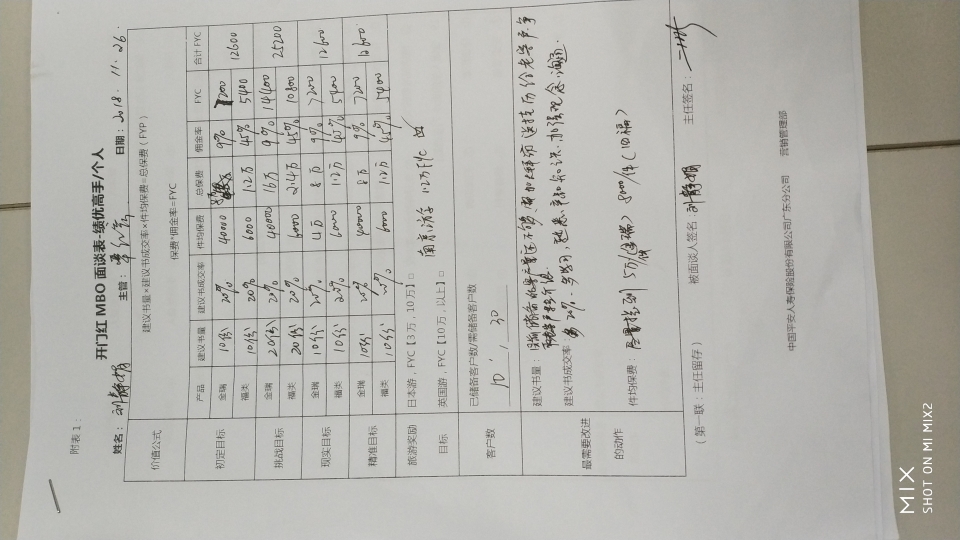 附表1:
开门红 MBO 面谈表-绩优高手/个人
姓名: 刘静娟 主管: 日期: 2018.11.26
价值公式 建议书量×建议书成交率×件均保费=总保费(FYP)
保费*佣金率=FYC
产品 建议书量 建议书成交率 件均保费 总保费 佣金率 FYC 合计FYC
初定目标 金瑞 10份 20% 40000 9% 7200 12600
福类 10份 20% 6000 1.2万 45% 5400
挑战目标 金瑞 20份 20% 40000 16万 9% 14400 25200
福类 20份 20% 6000 2.4万 45% 10800
现实目标 金瑞 10份 20% 4万 8万 9% 7200 12600
福类 10份 20% 6000 1.2万 45% 5400
精准目标 金瑞 10份 20% 40000 8万 9% 7200 12600
福类 10份 20% 6000 1.2万 45% 5400
旅游奖励 日本游,FYC【3万,10万】□ 南京游 1.2万FYC ☑
目标 英国游,FYC【10万,以上】□
客户数 已储备客户数/需储备客户数
10 , 30
最需要改进
的动作
建议书量: 目前储备的客户量还不够, 送挂历给老客户,争
建议书成交率: 20%. 多学习, 加强观念沟通.
件均保费: 尽量控制 5万/件(金瑞) 8000/件(福)
被面谈人签名: 刘静娟 主任签名:
(第一联:主任留存)
中国平安人寿保险股份有限公司广东分公司 营销管理部
MIX
SHOT ON MI MIX2